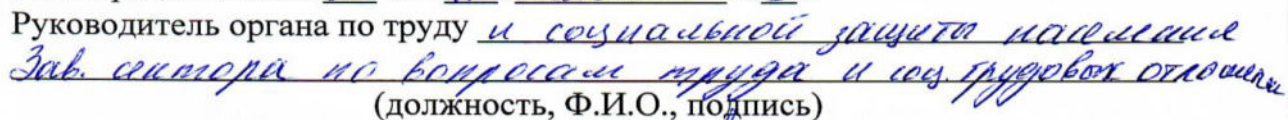 Руководитель органа по труду и социальной защиты населения
Зав. сектора по вопросам труда и соц. трудовых отношений
(должность, Ф.И.О., подпись)